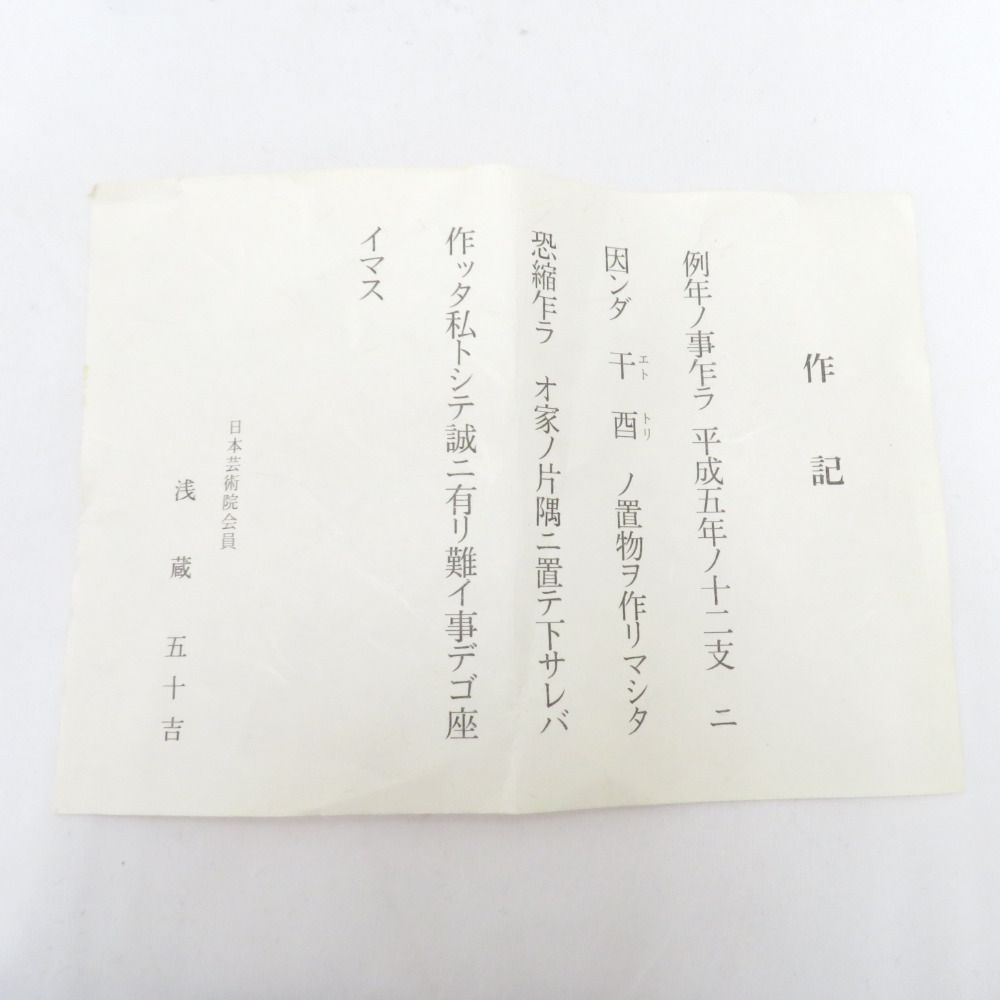 作記
例年ノ事乍ラ 平成五年ノ十二支 ニ
因ンダ 干酉 ノ置物ヲ作リマシタ
エト トリ
恐縮乍ラ オ家ノ片隅ニ置テ下サレバ
作ッタ私トシテ誠ニ有リ難イ事デゴ座
イマス
日本芸術院会員
浅蔵五十吉